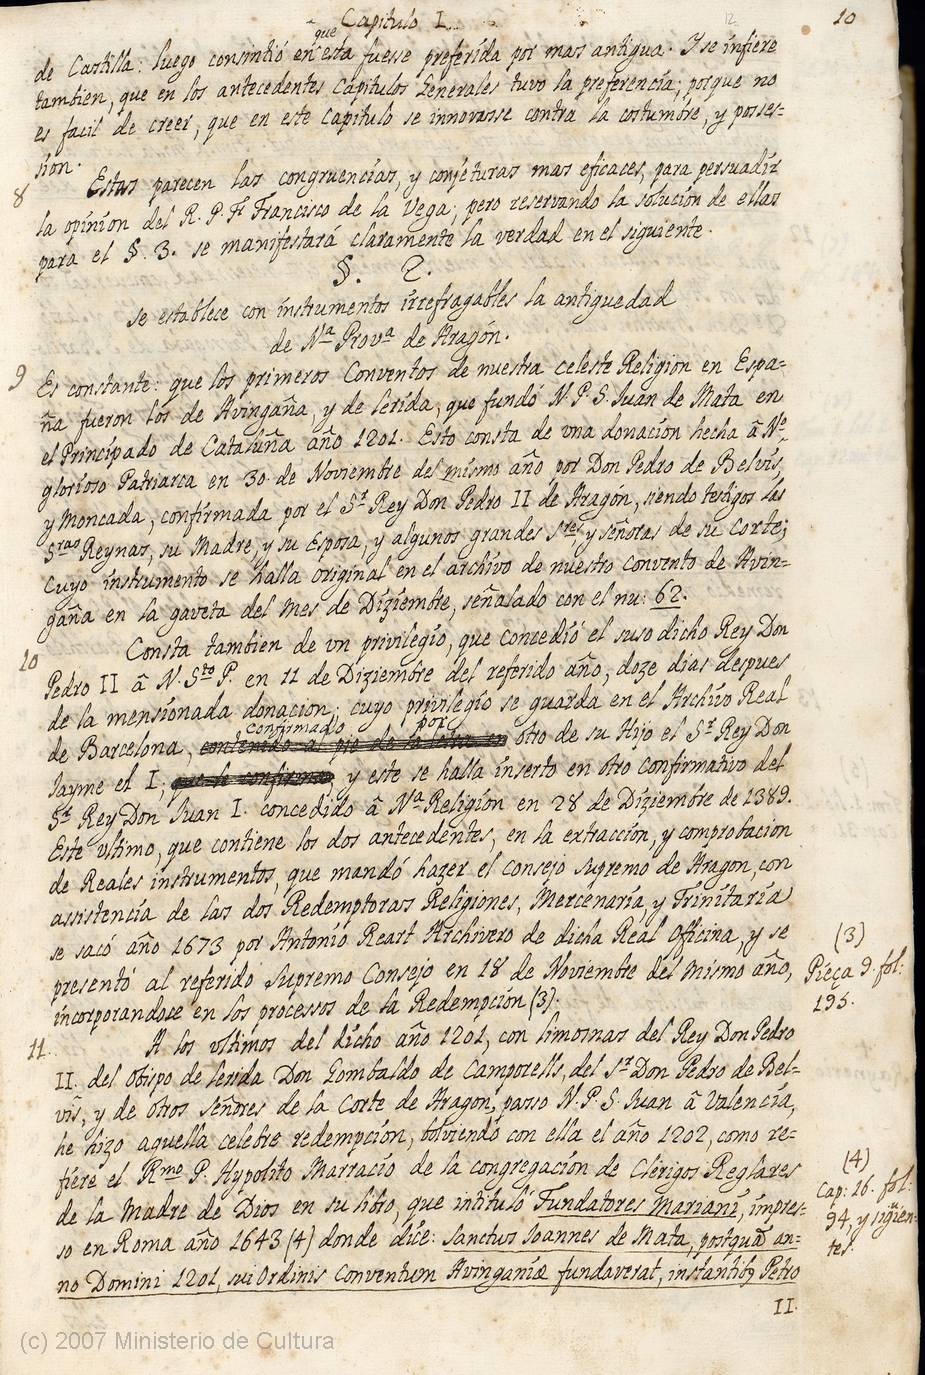 Capitulo I.
10
de Castilla: luego consintió en que esta fuesse preferida por mas antigua. Y se infiere
tambien, que en los antecedentes Capitulos Generales tuvo la preferencia; porque no
es facil de creer, que en este Capitulo se innovasse contra la costumbre, y posses-
sion.
8 Estas parecen las congruencias, y conjeturas mas eficaces, para persuadir
la opinion del R. P. Fr. Francisco de la Vega; pero reservando la solucion de ellas
para el §. 3. se manifestará claramente la verdad en el siguiente.
§. 2.
Se establece con instrumentos irrefragables la antiguedad
de Nª Provª de Aragón.
9 Es constante: que los primeros Conventos de nuestra celeste Religion en Espa-
ña fueron los de Avingaña, y de Lerida, que fundó N. P. S. Juan de Mata en
el Principado de Cataluña año 1201. Esto consta de vna donacion hecha â Nº
glorioso Patriarca en 30 de Noviembre del mismo año, por Don Pedro de Belvis,
y Moncada, confirmada por el Sr Rey Don Pedro II de Aragón, siendo testigos las
Sras Reynas, su Madre, y su Esposa, y algunos grandes Sres, y señoras de su Corte;
Cuyo instrumento se halla original en el archivo de nuestro Convento de Avin-
gaña en la gaveta del Mes de Diziembre, señalado con el nu: 62.
10 Consta tambien de vn privilegio, que concedió el suso dicho Rey Don
Pedro II â N. Sto P. en 11 de Diziembre del referido año, doze dias despues
de la mensionada donacion; cuyo privilegio se guarda en el Archivo Real
de Barcelona, confirmado por otro de su Hijo el Sr Rey Don
Jayme el I; y este se halla inserto en otro Confirmativo del
Sr Rey Don Juan I. concedido â Nª Religion en 28 de Diziembre de 1389.
Este vltimo, que contiene los dos antecedentes, en la extraccion, y comprobacion
de Reales instrumentos, que mandó hazer el Consejo Supremo de Aragon, con
assistencia de las dos Redemptoras Religiones, Mercenaria, y Trinitaria
se sacó año 1673 por Antonio Reart Archivero de dicha Real Officina, y se
presentó al referido Supremo Consejo en 18 de Noviembre del mismo año,
incorporandose en los processos de la Redempcion (3).
(3)
Pieça 9. fol:
195.
11 A los vltimos del dicho año 1201, con limosnas del Rey Don Pedro
II. del Obispo de Lerida Don Gombaldo de Camporells, del Sr Don Pedro de Bel-
vîs, y de otros Señores de la Corte de Aragon, passo N. P. S. Juan â Valencia,
he hizo aquella celebre redempcion, bolviendo con ella el año 1202, como re-
fiere el Rmo P. Hypolito Marracio de la congregación de Clerigos Reglares
de la Madre de Dios en su libro, que intituló Fundatores Mariani, impres-
so en Roma año 1643 (4) donde dice: Sanctus Joannes de Mata, postquã an-
no Domini 1201, sui Ordinis Conventum Avinganiæ fundaverat, instantibq Petro
(4)
Cap: 16. fol:
94, y siguien-
tes.
II.
(c) 2007 Ministerio de Cultura